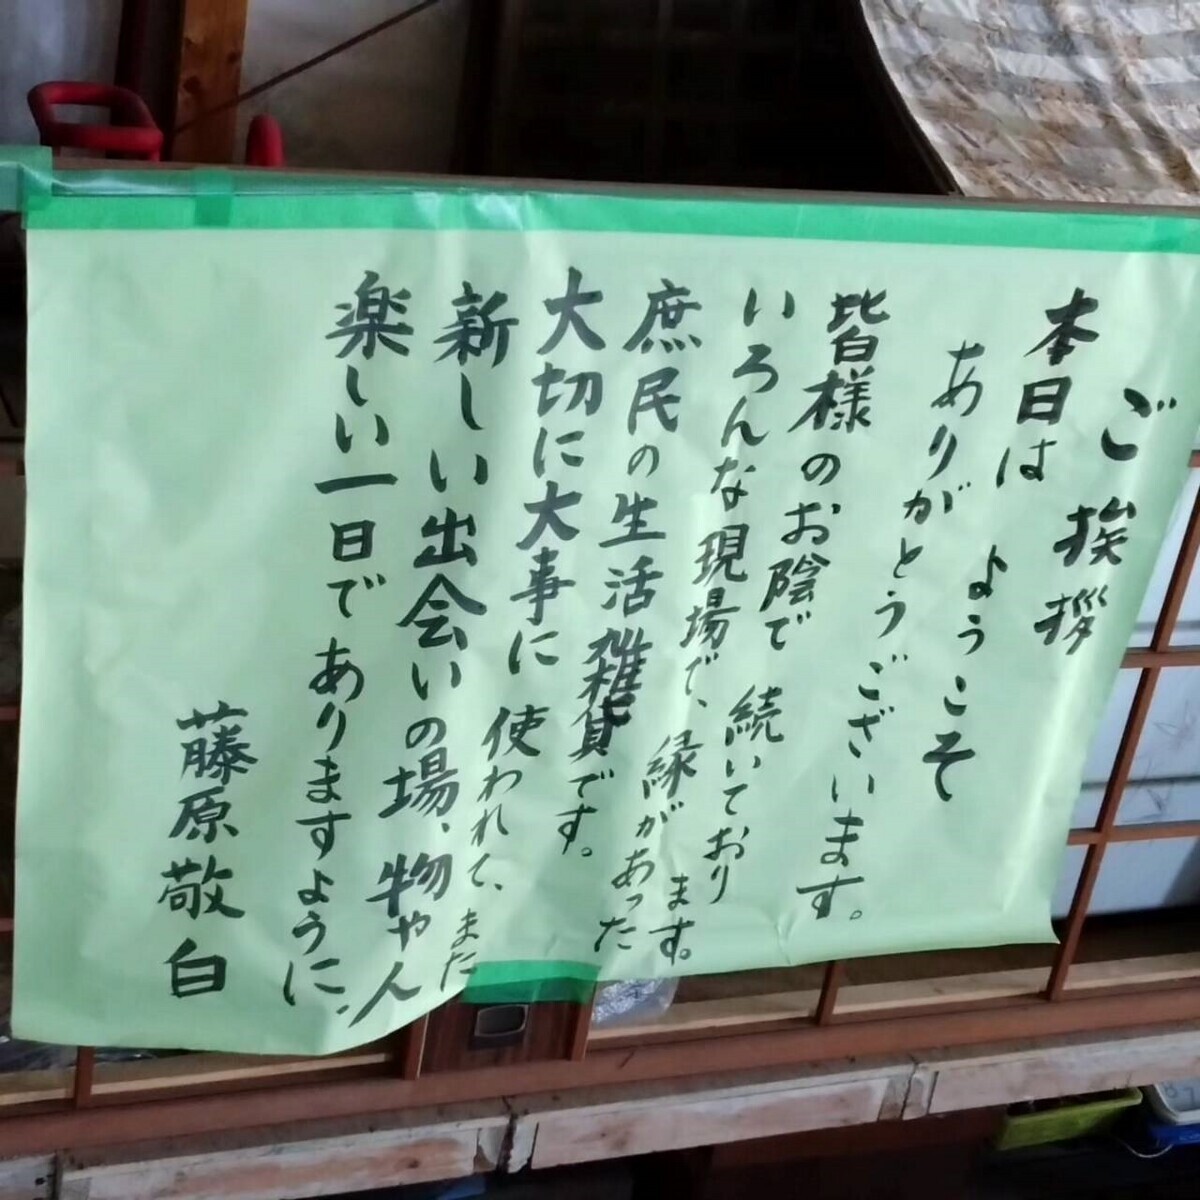 ご挨拶
本日は ようこそ
ありがとうございます。
皆様のお陰で 続いております。
いろんな現場で、縁があった
庶民の生活雑貨です。
大切に大事に 使われて、また
新しい出会いの場、物や人
楽しい一日でありますように、
藤原敬白